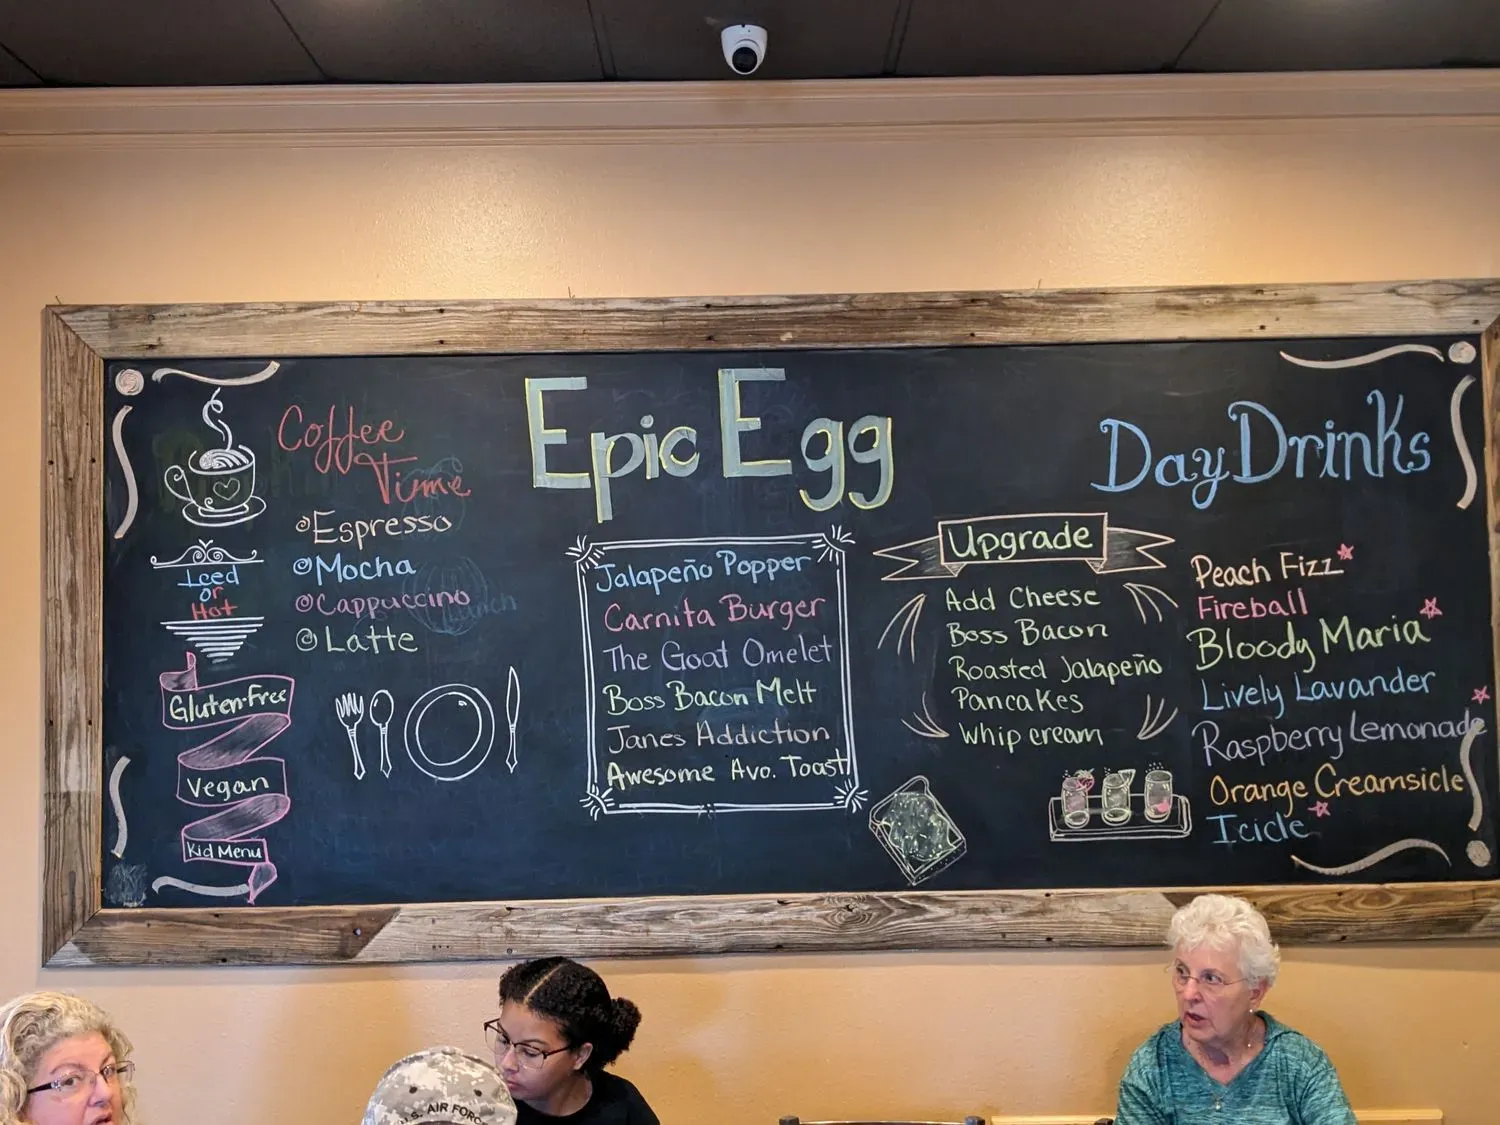 Epic Egg
Coffee
Time
Espresso
Mocha
Cappuccino
Latte
Iced
or
Hot
Gluten-Free
Vegan
Kid Menu
Jalapeño Popper
Carnita Burger
The Goat Omelet
Boss Bacon Melt
Janes Addiction
Awesome Avo. Toast
Upgrade
Add Cheese
Boss Bacon
Roasted Jalapeño
Pancakes
Whip cream
Day Drinks
Peach Fizz
Fireball
Bloody Maria
Lively Lavander
Raspberry Lemonade
Orange Creamsicle
Icicle
U.S. AIR FORC